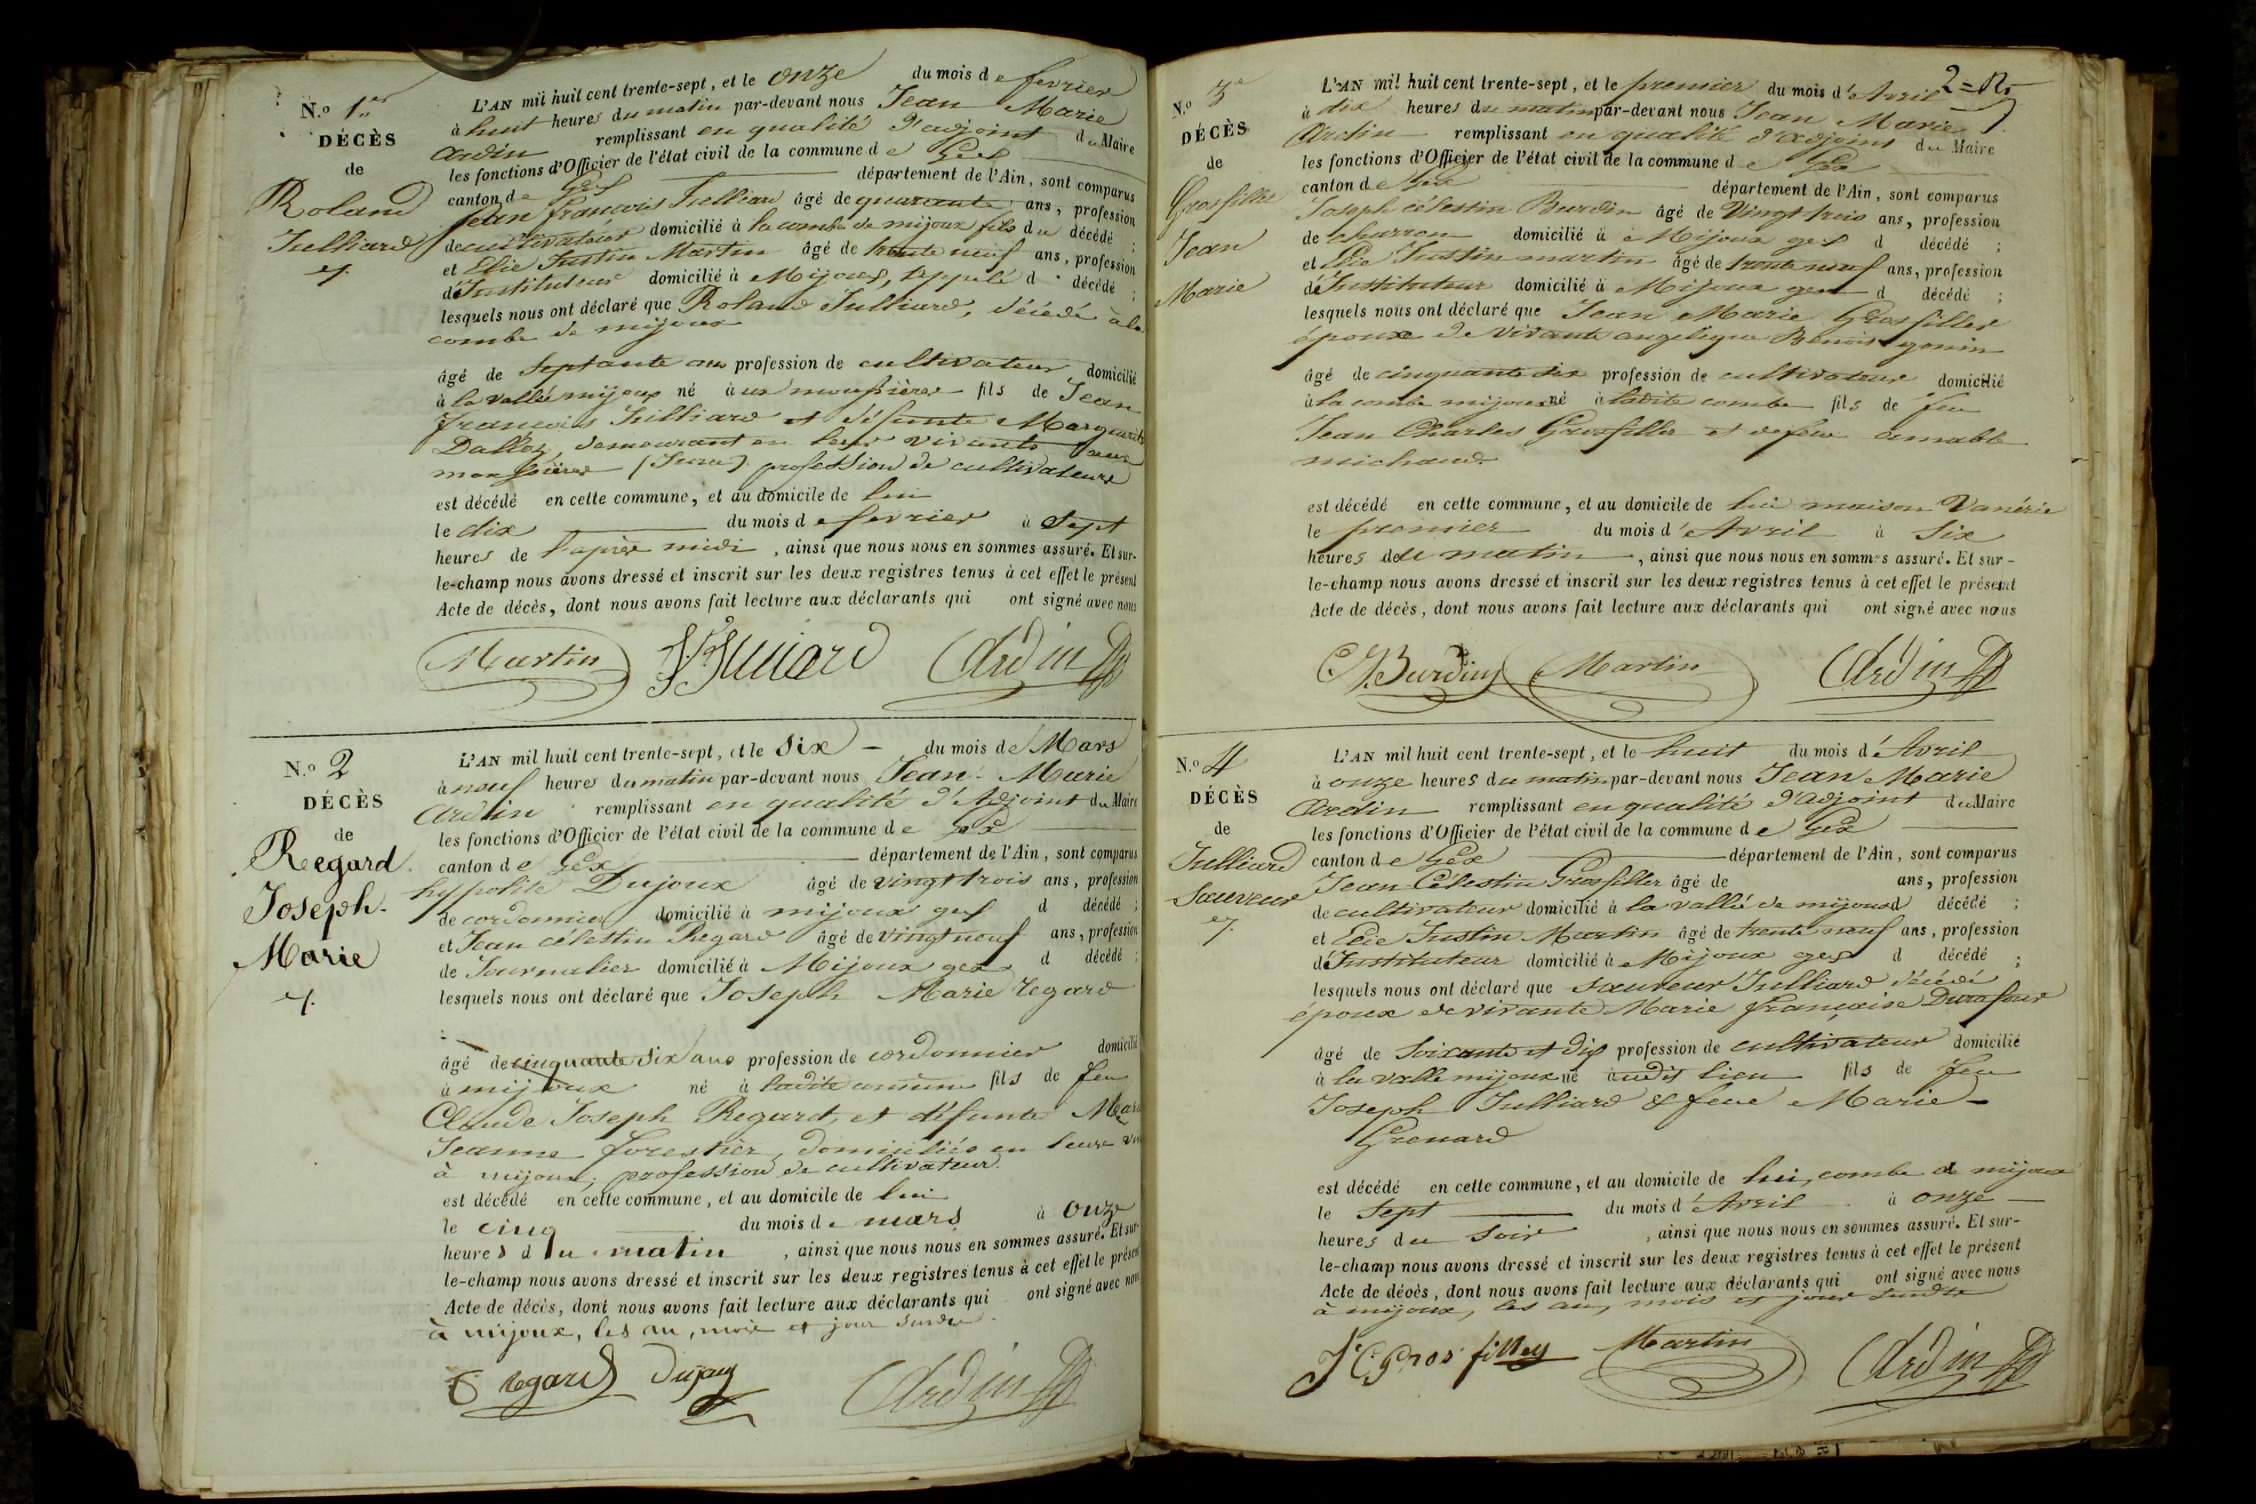 N.o 1.er
DÉCÈS
de
Roland
Julliard
L'AN mil huit cent trente-sept, et le onze du mois de fevrier
à huit heures du matin par-devant nous Jean Marie
Ardin remplissant en qualité d'adjoint du Maire
les fonctions d'Officier de l'état civil de la commune de Gex
canton de Gex département de l'Ain, sont comparus
Jean françois Julliard âgé de quarante ans, profession
de cultivateur domicilié à la combe de mijoux fils du décédé ;
et Elie Justin Martin âgé de trente neuf ans, profession
d'Instituteur domicilié à Mijoux, appelé d décédé ;
lesquels nous ont déclaré que Roland Julliard, décédé à la
combe de mijoux
âgé de septante ans profession de cultivateur domicilié
à la vallée mijoux né aux moussières fils de Jean
françois Julliard et défunte Marguerite
Dalloz, demeurant en leur vivants aux
moussières (Jura) profession de cultivateurs
est décédé en cette commune, et au domicile de lui
le dix du mois de fevrier à sept
heures de l'après midi, ainsi que nous nous en sommes assuré. Et sur-
le-champ nous avons dressé et inscrit sur les deux registres tenus à cet effet le présent
Acte de décès, dont nous avons fait lecture aux déclarants qui ont signé avec nous
Martin Julliard Ardin
N.o 2
DÉCÈS
de
Regard
Joseph-
Marie
L'AN mil huit cent trente-sept, et le six du mois de Mars
à neuf heures du matin par-devant nous Jean-Marie
Ardin remplissant en qualité d'Adjoint du Maire
les fonctions d'Officier de l'état civil de la commune de Gex
canton de Gex département de l'Ain, sont comparus
hyppolite Dujoux âgé de vingt trois ans, profession
de cordonnier domicilié à mijoux gex d décédé ;
et Jean célestin Regard âgé de vingt neuf ans, profession
de Journalier domicilié à Mijoux gex d décédé ;
lesquels nous ont déclaré que Joseph Marie regard
âgé de cinquante six ans profession de cordonnier domicilié
à mijoux né à ladite commune fils de feu
Claude Joseph Regard, et défunte
Jeanne forestier, domiciliés en leurs
à mijoux, profession de cultivateur.
est décédé en cette commune, et au domicile de lui
le cinq du mois de mars à onze
heures du matin, ainsi que nous nous en sommes assuré. Et sur-
le-champ nous avons dressé et inscrit sur les deux registres tenus à cet effet le présent
Acte de décès, dont nous avons fait lecture aux déclarants qui ont signé avec nous
à mijoux, les an, mois et jour susdit.
Regard Dujoux Ardin
N.o 3e
DÉCÈS
de
Grosfiller
Jean
Marie
L'AN mil huit cent trente-sept, et le premier du mois d'Avril
à dix heures du matin par-devant nous Jean Marie
Ardin remplissant en qualité d'adjoint du Maire
les fonctions d'Officier de l'état civil de la commune de Gex
canton de Gex département de l'Ain, sont comparus
Joseph célestin Burdin âgé de Vingt trois ans, profession
de charron domicilié à Mijoux gex d décédé ;
et Elie Justin martin âgé de trente neuf ans, profession
d'Instituteur domicilié à Mijoux gex d décédé ;
lesquels nous ont déclaré que Jean Marie Grosfiller
époux de vivante angelique Benoit gonin
âgé de cinquante six profession de cultivateur domicilié
à la combe mijoux né à ladite combe fils de feu
Jean Charles Grosfiller et de feue aimable
michaud.
est décédé en cette commune, et au domicile de lui maison Vanérie
le premier du mois d'Avril à six
heures de du matin, ainsi que nous nous en sommes assuré. Et sur-
le-champ nous avons dressé et inscrit sur les deux registres tenus à cet effet le présent
Acte de décès, dont nous avons fait lecture aux déclarants qui ont signé avec nous
Burdin Martin Ardin
N.o 4
DÉCÈS
de
Julliard
Sauveur
L'AN mil huit cent trente-sept, et le huit du mois d'Avril
à onze heures du matin par-devant nous Jean Marie
Ardin remplissant en qualité d'adjoint du Maire
les fonctions d'Officier de l'état civil de la commune de Gex
canton de Gex département de l'Ain, sont comparus
Jean Célestin Grosfiller âgé de ans, profession
de cultivateur domicilié à la vallé de mijoux d décédé ;
et Elie Justin Martin âgé de trente neuf ans, profession
d'Instituteur domicilié à Mijoux gex d décédé ;
lesquels nous ont déclaré que sauveur Julliard décédé
époux de vivante Marie françoise Durafour
âgé de soixante et dix profession de cultivateur domicilié
à la valle mijoux né audit lieu fils de feu
Joseph Julliard & feue Marie
Grenard
est décédé en cette commune, et au domicile de lui, combe de mijoux
le sept du mois d'Avril à onze
heures du soir, ainsi que nous nous en sommes assuré. Et sur-
le-champ nous avons dressé et inscrit sur les deux registres tenus à cet effet le présent
Acte de décès, dont nous avons fait lecture aux déclarants qui ont signé avec nous
à mijoux, les an, mois et jour susdits
J C Grosfilley Martin Ardin